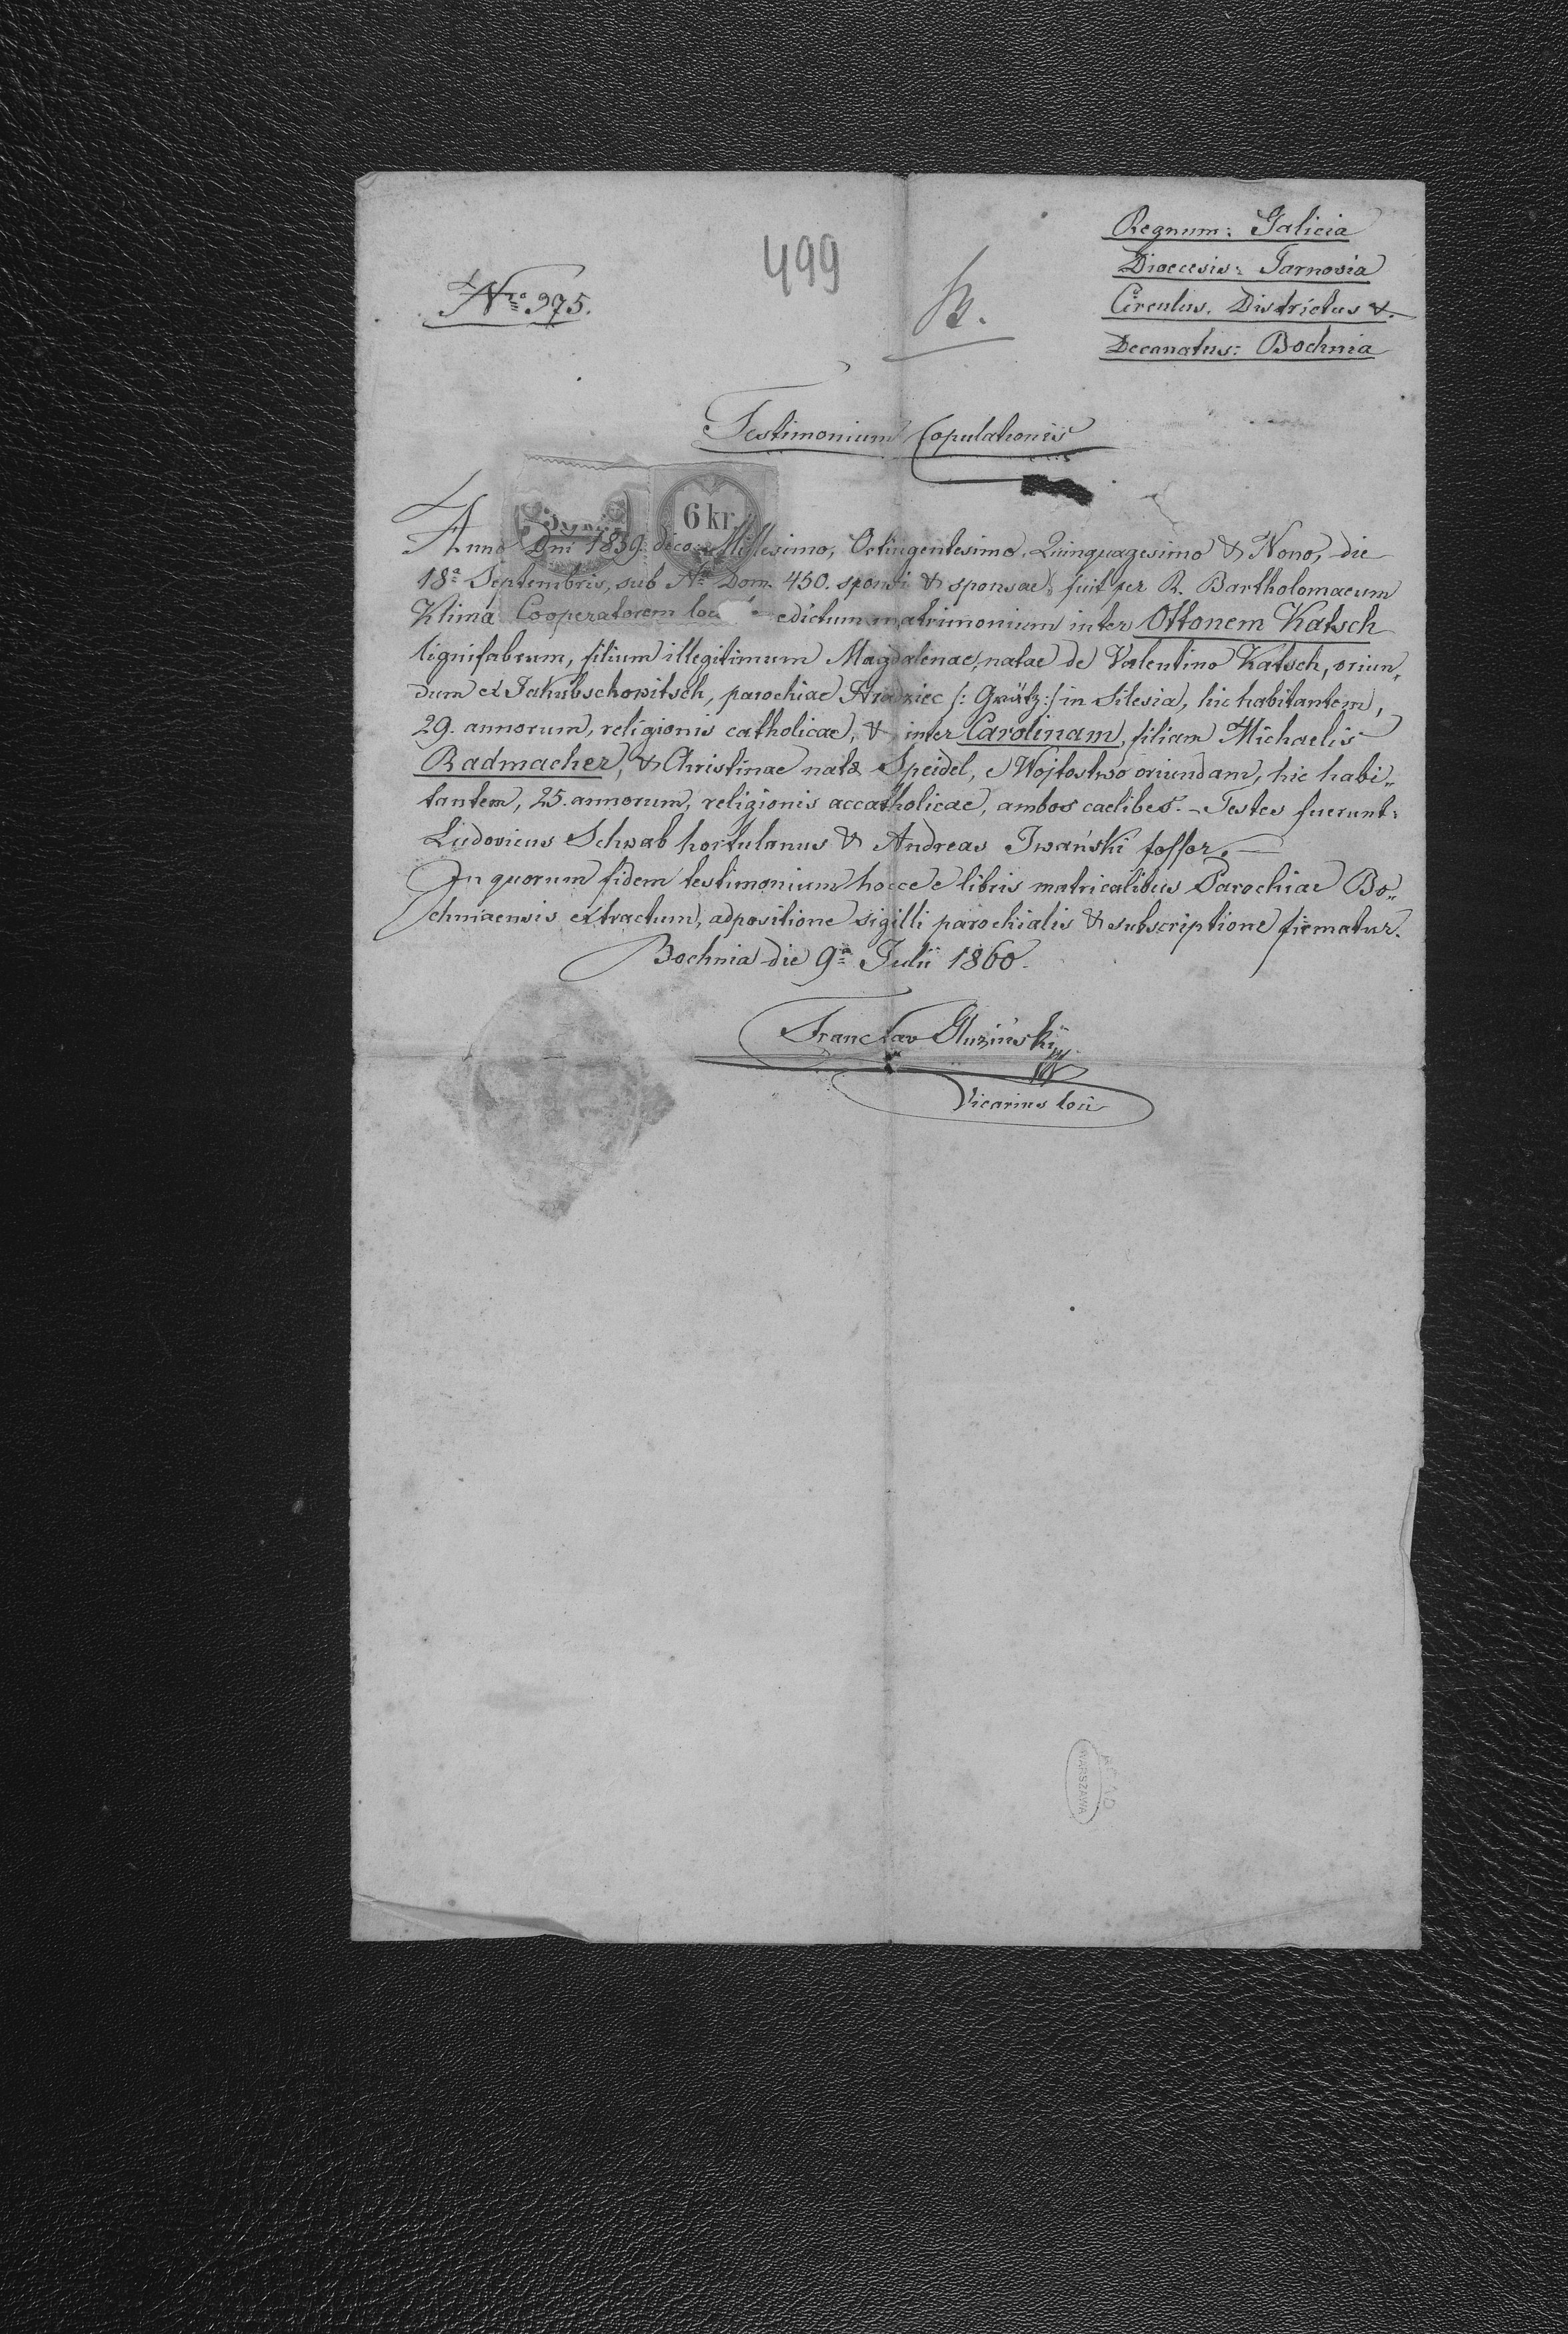 499
Nro 975.
B.
Regnum: Galicia
Dioecesis: Tarnovia
Circulus, Districtus &
Decanatus: Bochnia
Testimonium Copulationis
6 kr.
Anno Dni 1859. dico: Millesimo, Octingentesimo, Quinquagesimo & Nono, die
18a Septembris, sub No Dom. 450. sponsi & sponsae, fuit per R. Bartholomaeum
Klima Cooperatorem edictum matrimonium inter Ottonem Katsch
lignifabrum, filium illegitimum Magdalenae, natae de Valentino Katsch, oriun„
dum ex Jakubschowitsch, parochiae Hradziec /: Grätz :/ in Silesia, hic habitantem,
29. annorum, religionis catholicae, & inter Carolinam, filiam Michaelis
Radmacher, & Christinae natae Speidel, e Wojtostwo oriundam, hic habi„
tantem, 25. annorum, religionis accatholicae, ambos caelibes. – Testes fuerunt:
Ludovicus Schwab hortulanus & Andreas Iwański fossor. —
In quorum fidem testimonium hocce e libris matricalibus Parochiae Bo„
chniaensis extractum, adpositione sigilli parochialis & subscriptione firmatur.
Bochnia die 9a Julii 1860.
Franc Xav Gluziński
Vicarius loci
AGAD
WARSZAWA